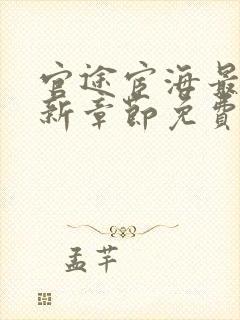 官途宦海最
新章節免費
孟芊